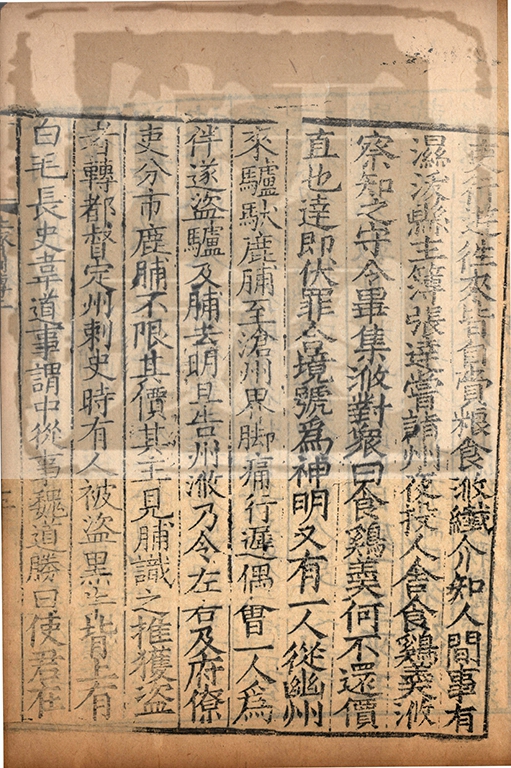 吏行迹往來皆自賫粮食浟纖介知人間事有
濕沃縣主簿張達嘗詣州夜投人舍食鷄羹浟
察知之守令畢集浟對衆曰食鷄羹何不還價
直也達即伏罪合境號爲神明又有一人從幽州
來驢馱鹿脯至滄州界脚痛行遲偶會一人爲
伴遂盗驢及脯去明旦告州浟乃令左右及府僚
吏分市鹿脯不限其價其主見脯識之推獲盗
者轉都督定州刺史時有人被盗黑牛背上有
白毛長史韋道事謂中從事魏道勝曰使君在